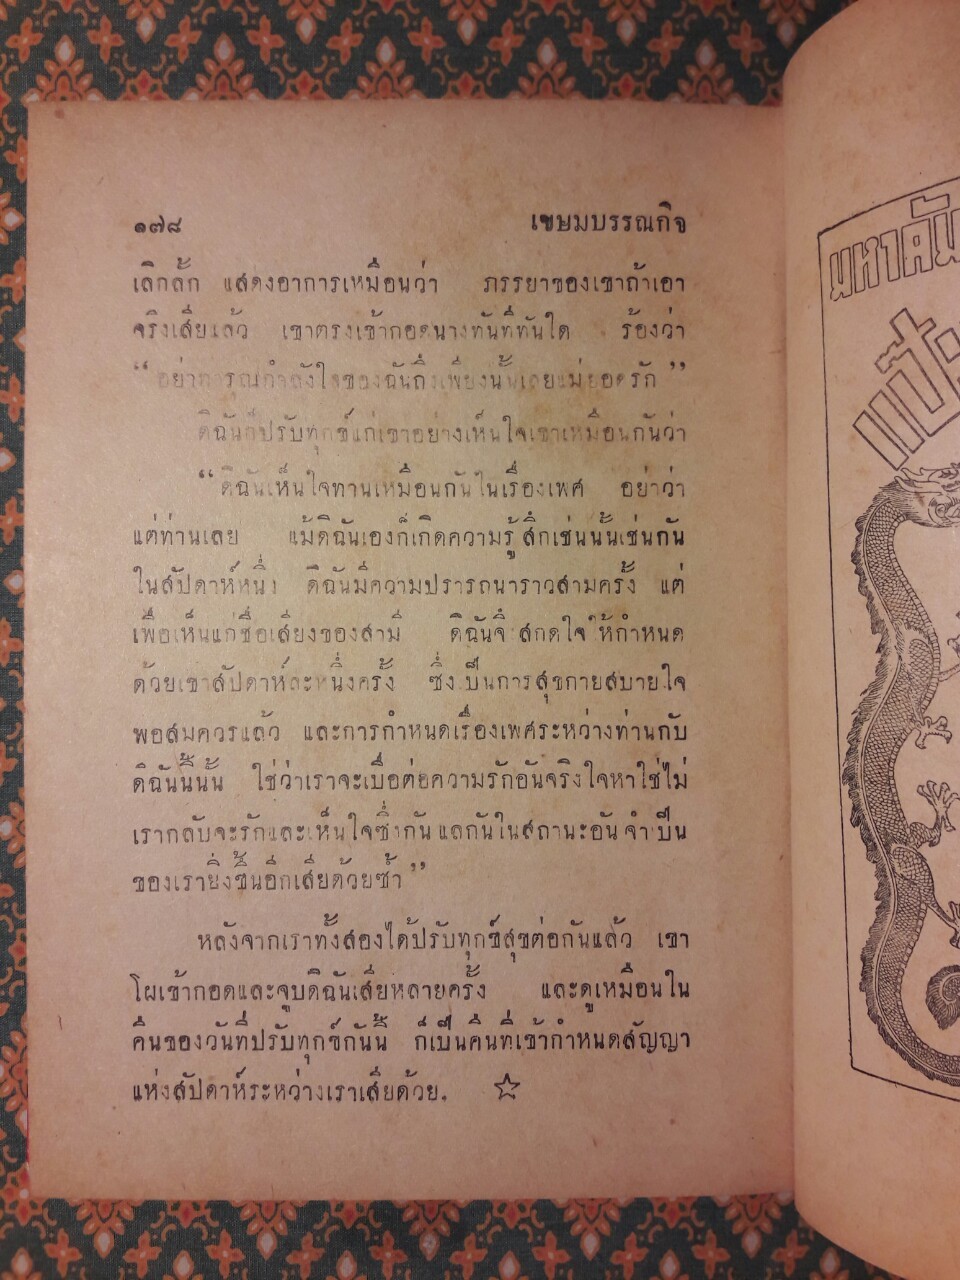 ๑๗๘ เขษมบรรณกิจ
เลิกลั้ก แสดงอาการเหมือนว่า ภรรยาของเขาถ้าเอา
จริงเสียแล้ว เขาตรงเข้ากอดนางทันทีทันใด ร้องว่า
“อย่าทารุณกำลังใจของฉันถึงเพียงนั้นเลยแม่ยอดรัก”
ดิฉันก็ปรับทุกข์แก่เขาอย่างเห็นใจเขาเหมือนกันว่า
“ดิฉันเห็นใจท่านเหมือนกันในเรื่องเพศ อย่าว่า
แต่ท่านเลย แม้ดิฉันเองก็เกิดความรู้สึกเช่นนั้นเช่นกัน
ในสัปดาห์หนึ่ง ดิฉันมีความปรารถนาราวสามครั้ง แต่
เพื่อเห็นแก่ชื่อเสียงของสามี ดิฉันจึงสกดใจให้กำหนด
ด้วยเขาสัปดาห์ละหนึ่งครั้ง ซึ่งเป็นการสุขกายสบายใจ
พอสมควรแล้ว และการกำหนดเรื่องเพศระหว่างท่านกับ
ดิฉันนี้นั้น ใช่ว่าเราจะเบื่อต่อความรักอันจริงใจหาใช่ไม่
เรากลับจะรักและเห็นใจซึ่งกันแลกันในสถานะอันจำเป็น
ของเรายิ่งขึ้นอีกเสียด้วยซ้ำ”
หลังจากเราทั้งสองได้ปรับทุกข์สุขต่อกันแล้ว เขา
โผเข้ากอดและจูบดิฉันเสียหลายครั้ง และดูเหมือนใน
คืนของวันที่ปรับทุกข์กันนี้ ก็เป็นคืนที่เข้ากำหนดสัญญา
แห่งสัปดาห์ระหว่างเราเสียด้วย.